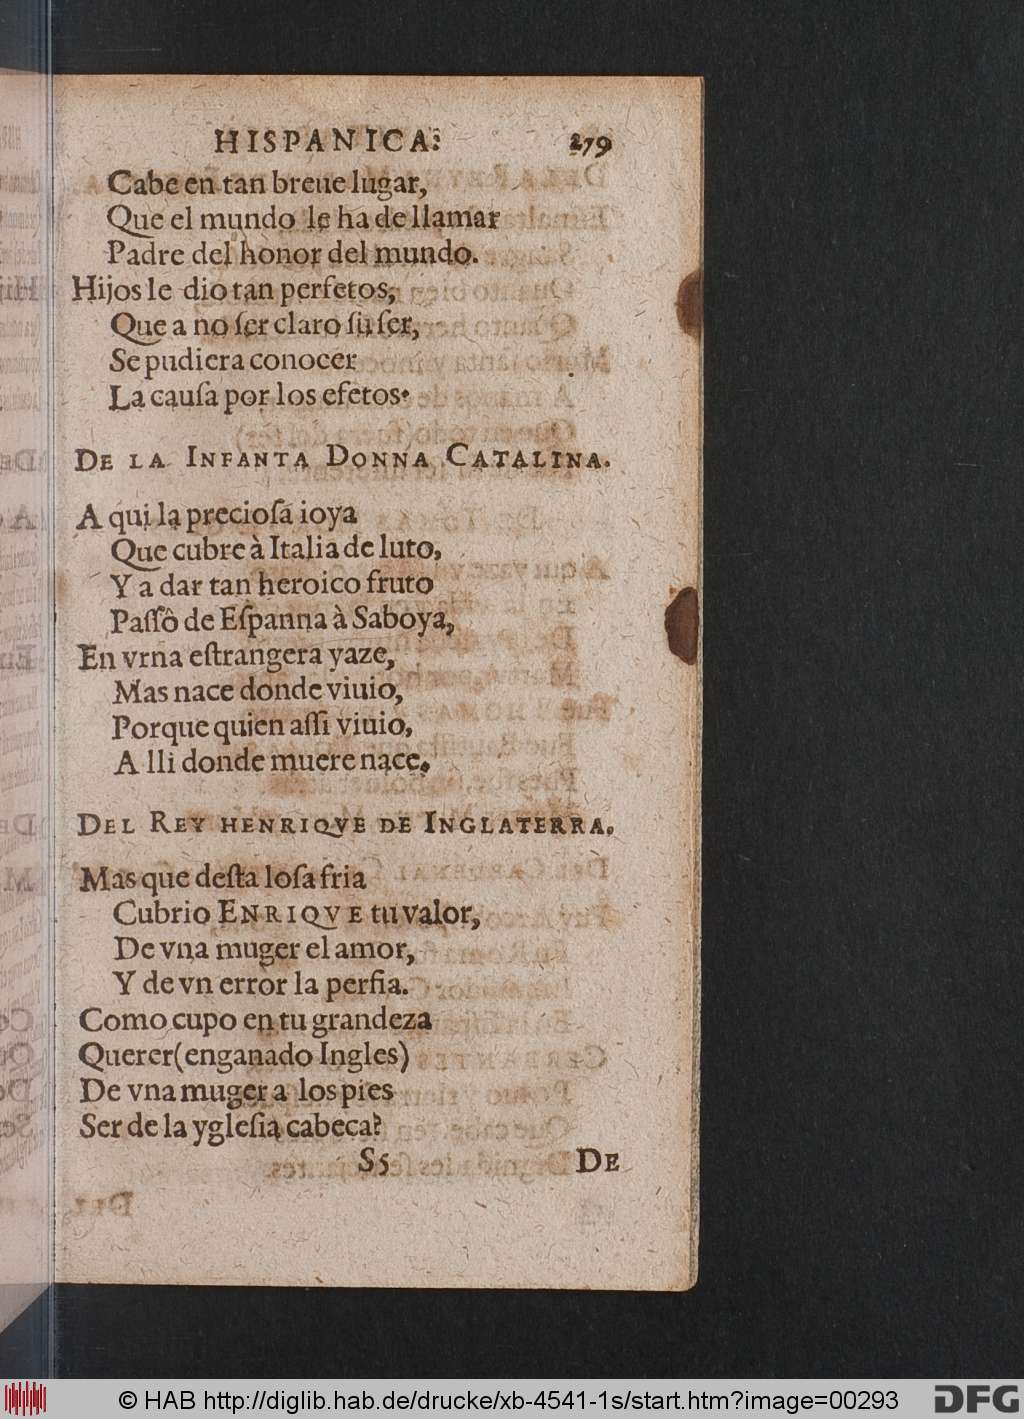 HISPANICA. 279
Cabe en tan breue lugar,
Que el mundo le ha de llamar
Padre del honor del mundo.
Hijos le dio tan perfetos,
Que a no ſer claro ſu ſer,
Se pudiera conocer
La cauſa por los efetos.
DE LA INFANTA DONNA CATALINA.
A qui la precioſa ioya
Que cubre à Italia de luto,
Y a dar tan heroico fruto
Paſſô de Eſpanna à Saboya,
En vrna eſtrangera yaze,
Mas nace donde viuio,
Porque quien aſſi viuio,
A lli donde muere nace.
DEL REY HENRIQVE DE INGLATERRA.
Mas que deſta loſa fria
Cubrio ENRIQVE tu valor,
De vna muger el amor,
Y de vn error la perfia.
Como cupo en tu grandeza
Querer (enganado Ingles)
De vna muger a los pies
Ser de la ygleſia cabeca?
S5 DE
© HAB http://diglib.hab.de/drucke/xb-4541-1s/start.htm?image=00293
DFG